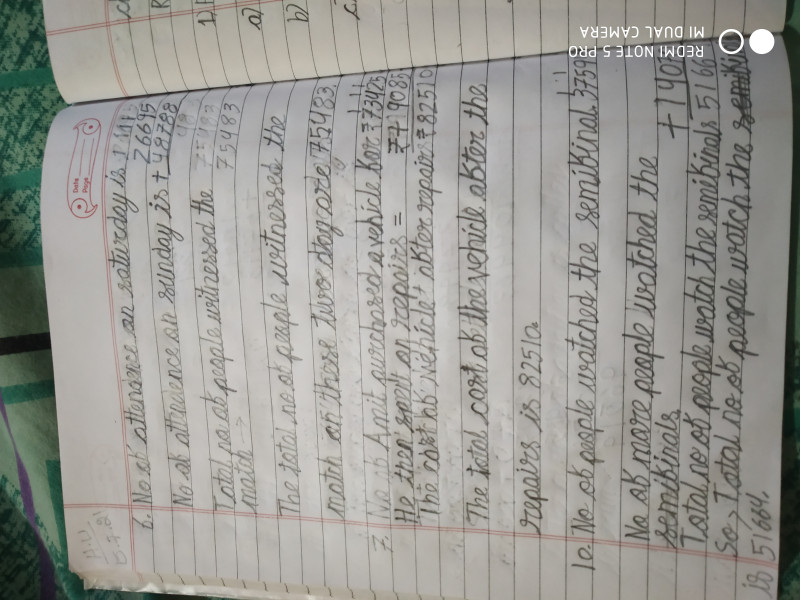 Date
Page
H.W
6. No of attendence on saturday is
26695
No of attendence on sunday is + 48788
Total no of people witnessed the 75483
match → 75483
The total no of people witnessed the
match on these two days are 75483
7. No of Amit purchased a vehicle for ₹73425
He then spent on repairs = ₹+19085
The cost of vehicle after repairs ₹82510
The total cost of the vehicle after the
repairs is 82510
10. No of people watched the semifinal 3759
No of more people watched the
semifinals + 1407
Total no of people watch the semifinals 5166
So, Total no of people watch the semifin
is 51664.
a)
b)
c.
REDMI NOTE 5 PRO
MI DUAL CAMERA